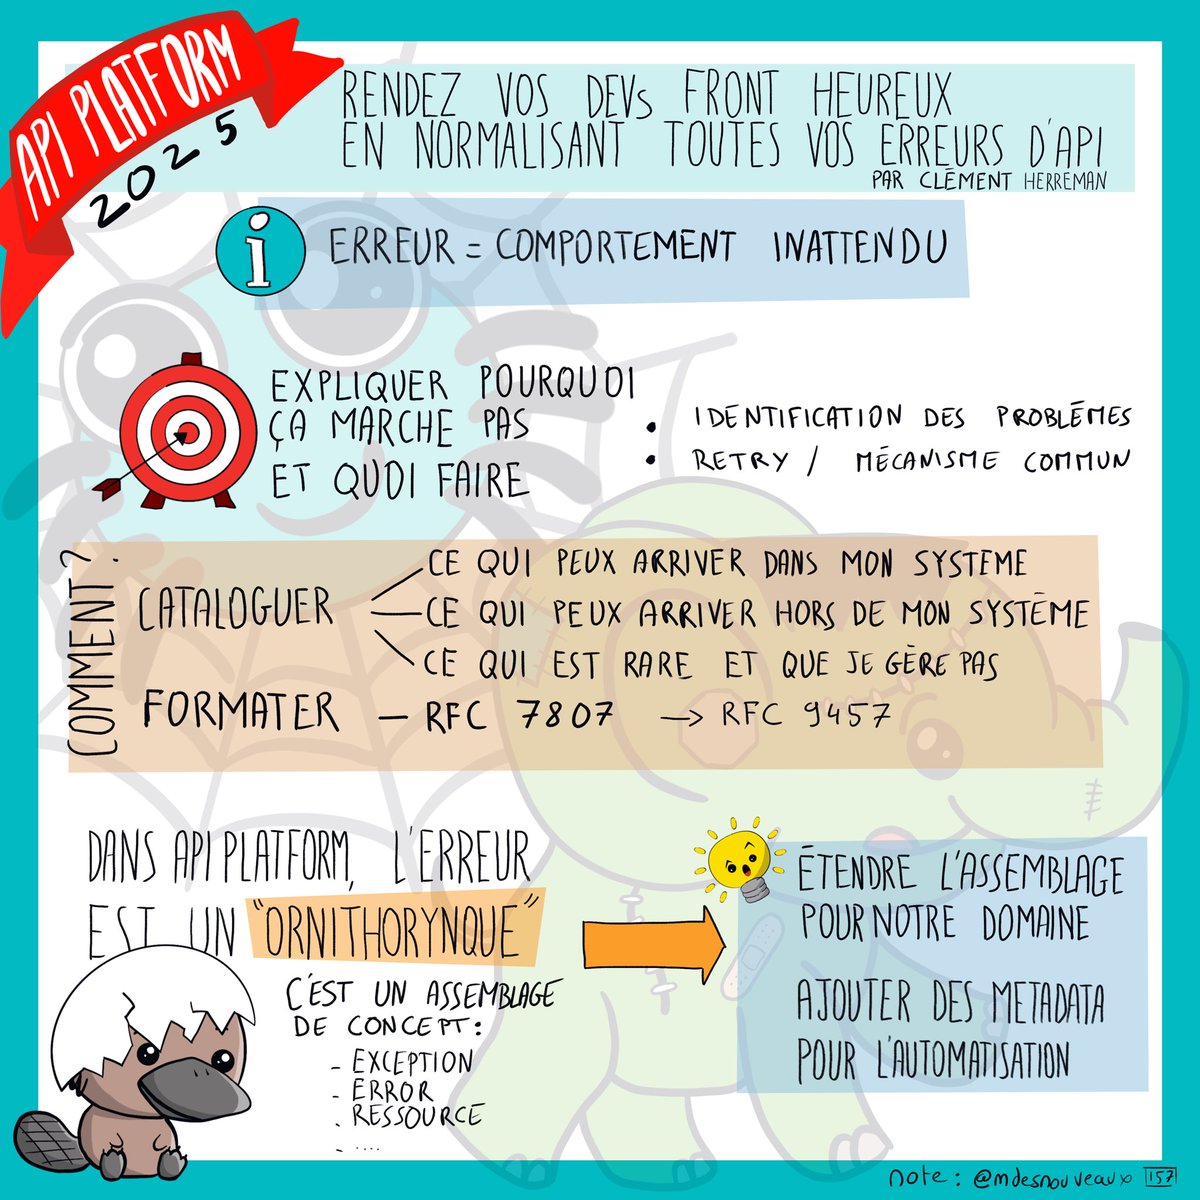 API PLATFORM
2025
RENDEZ VOS DEVs FRONT HEUREUX
EN NORMALISANT TOUTES VOS ERREURS D'API
PAR CLÉMENT HERREMAN
i ERREUR = COMPORTEMENT INATTENDU
EXPLIQUER POURQUOI
ÇA MARCHE PAS
ET QUOI FAIRE
• IDENTIFICATION DES PROBLÈMES
• RETRY / MÉCANISME COMMUN
COMMENT ?
CATALOGUER
CE QUI PEUX ARRIVER DANS MON SYSTEME
CE QUI PEUX ARRIVER HORS DE MON SYSTÈME
CE QUI EST RARE ET QUE JE GÈRE PAS
FORMATER – RFC 7807 → RFC 9457
DANS API PLATFORM, L'ERREUR
EST UN "ORNITHORYNQUE"
C'EST UN ASSEMBLAGE
DE CONCEPT :
- EXCEPTION
- ERROR
. RESSOURCE
. ....
ÉTENDRE L'ASSEMBLAGE
POUR NOTRE DOMAINE
AJOUTER DES METADATA
POUR L'AUTOMATISATION
note : @mdesnouveaux 157